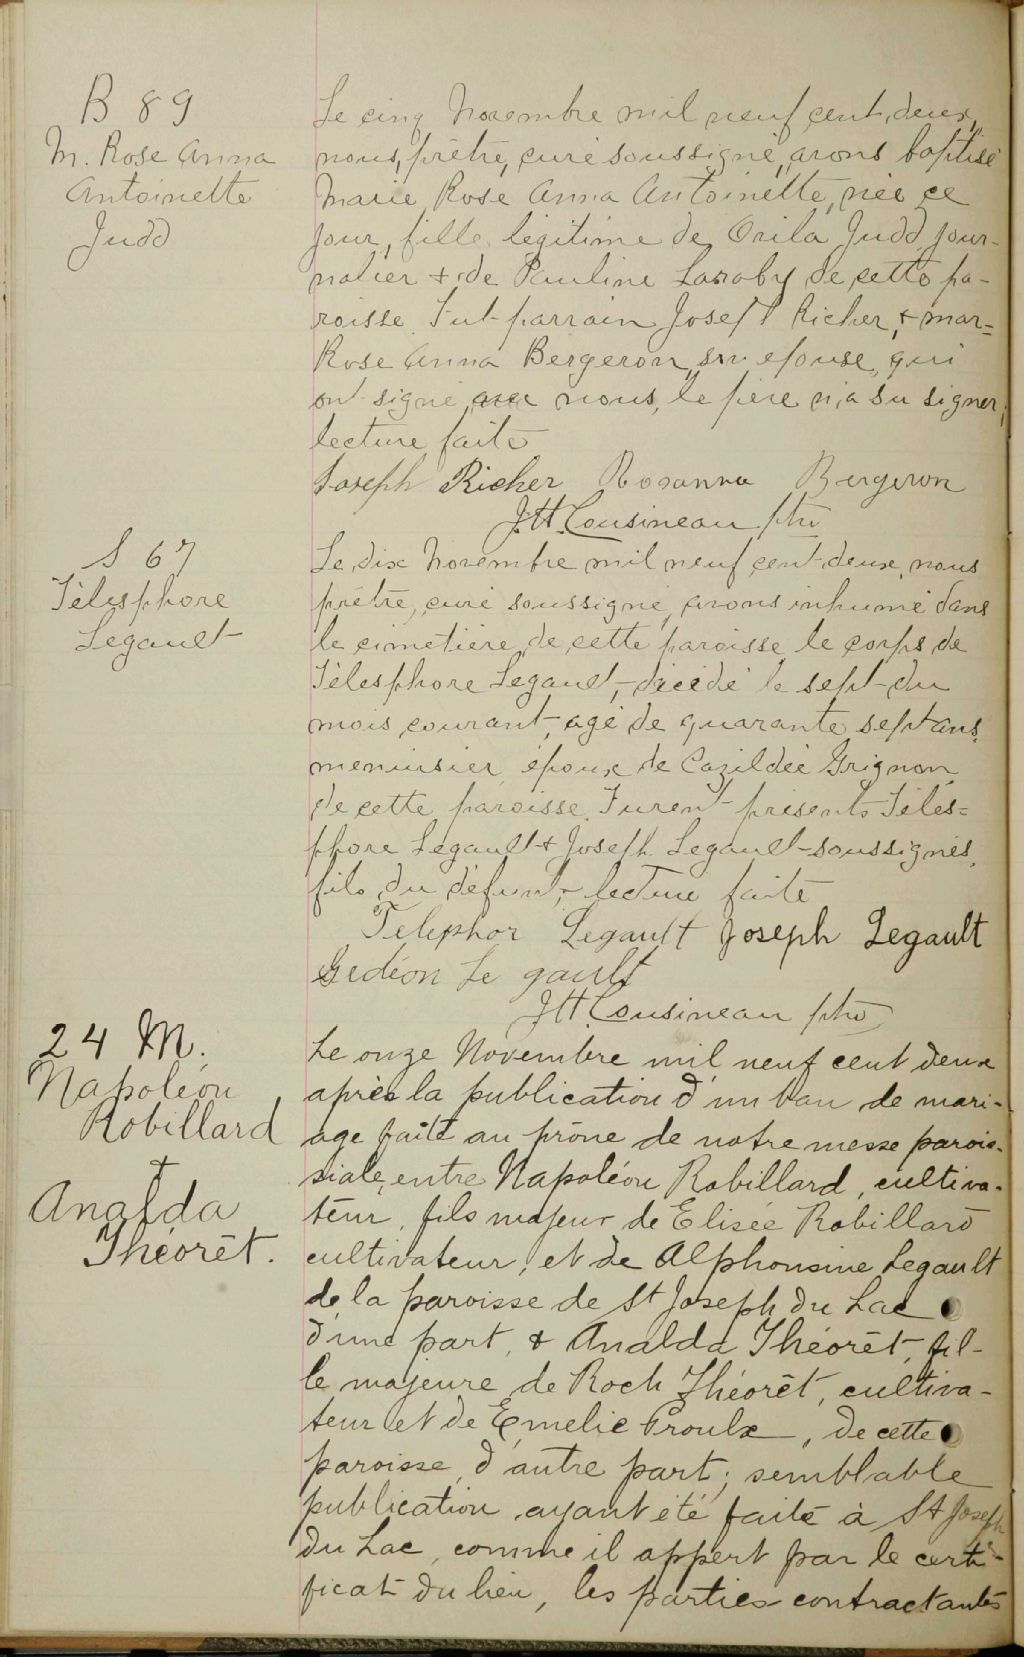 B 89
M. Rose Anna
Antoinette
Judd
Le cinq Novembre mil neuf cent deux,
nous, prêtre, curé soussigné, avons baptisé
Marie Rose Anna Antoinette, née ce
jour, fille légitime de Orila Judd, jour-
nalier & de Pauline Laraby de cette pa-
roisse. Fut parrain Joseph Richer, & mar=
Rose Anna Bergeron, son épouse, qui
ont signé avec nous, le père n'a su signer,
lecture faite
Joseph Richer Rosanna Bergeron
J.H. Cousineau ptre
S 67
Télesphore
Legault
Le dix Novembre mil neuf cent deux, nous
prêtre, curé soussigné, avons inhumé dans
le cimetière de cette paroisse le corps de
Télesphore Legault, décédé le sept du
mois courant, agé de quarante sept ans,
menuisier, époux de Cazildée Grignon,
de cette paroisse. Furent présents Téles=
phore Legault & Joseph Legault soussignés,
fils du défunt, lecture faite
Telephor Legault Joseph Legault
Gedéon Le gault
J.H. Cousineau ptre
24 M.
Napoléon
Robillard
&
Analda
Théorêt.
Le onze Novembre mil neuf cent deux
après la publication d'un ban de mari-
age faite au prône de notre messe parois-
siale, entre Napoléon Robillard, cultiva-
teur, fils majeur de Elisée Robillard
cultivateur, et de Alphonsine Legault
de la paroisse de St Joseph du Lac
d'une part, & Analda Théorêt, fil-
le majeure de Roch Théorêt, cultiva-
teur et de Emelie Proulx, de cette
paroisse, d'autre part; semblable
publication ayant été faite à St Joseph
du Lac, comme il appert par le certi-
ficat du lieu, les parties contractantes